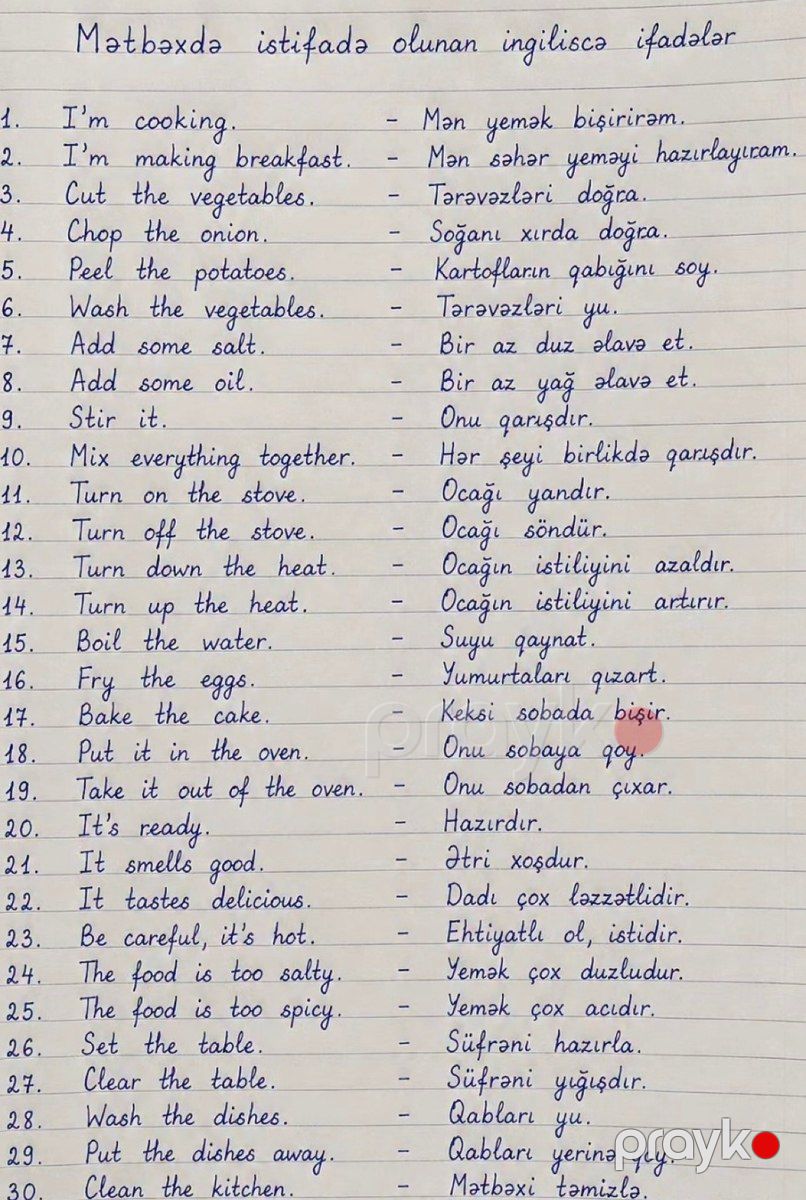 Mətbəxdə istifadə olunan ingiliscə ifadələr
1. I'm cooking. - Mən yemək bişirirəm.
2. I'm making breakfast. - Mən səhər yeməyi hazırlayıram.
3. Cut the vegetables. - Tərəvəzləri doğra.
4. Chop the onion. - Soğanı xırda doğra.
5. Peel the potatoes. - Kartofların qabığını soy.
6. Wash the vegetables. - Tərəvəzləri yu.
7. Add some salt. - Bir az duz əlavə et.
8. Add some oil. - Bir az yağ əlavə et.
9. Stir it. - Onu qarışdır.
10. Mix everything together. - Hər şeyi birlikdə qarışdır.
11. Turn on the stove. - Ocağı yandır.
12. Turn off the stove. - Ocağı söndür.
13. Turn down the heat. - Ocağın istiliyini azaldır.
14. Turn up the heat. - Ocağın istiliyini artırır.
15. Boil the water. - Suyu qaynat.
16. Fry the eggs. - Yumurtaları qızart.
17. Bake the cake. - Keksi sobada bişir.
18. Put it in the oven. - Onu sobaya qoy.
19. Take it out of the oven. - Onu sobadan çıxar.
20. It's ready. - Hazırdır.
21. It smells good. - Ətri xoşdur.
22. It tastes delicious. - Dadı çox ləzzətlidir.
23. Be careful, it's hot. - Ehtiyatlı ol, istidir.
24. The food is too salty. - Yemək çox duzludur.
25. The food is too spicy. - Yemək çox acıdır.
26. Set the table. - Süfrəni hazırla.
27. Clear the table. - Süfrəni yığışdır.
28. Wash the dishes. - Qabları yu.
29. Put the dishes away. - Qabları yerinə
30. Clean the kitchen. - Mətbəxi təmizlə.
prayk
prayk